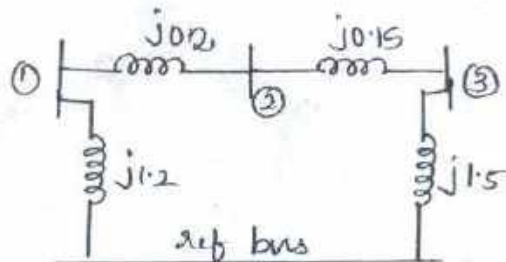 j0.2 j0.15
① ② ③
j1.2 j1.5
ref bus